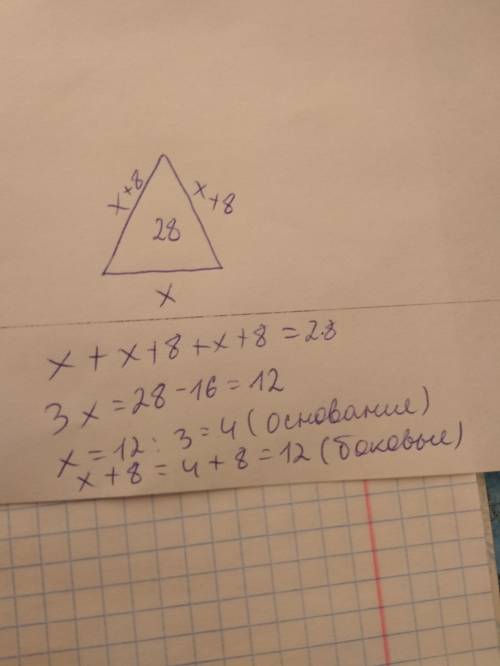 x+8
x+8
28
x
x + x+8 +x+8 = 28
3x = 28 - 16 = 12
x = 12 : 3 = 4 (основание)
x + 8 = 4 + 8 = 12 (боковые)